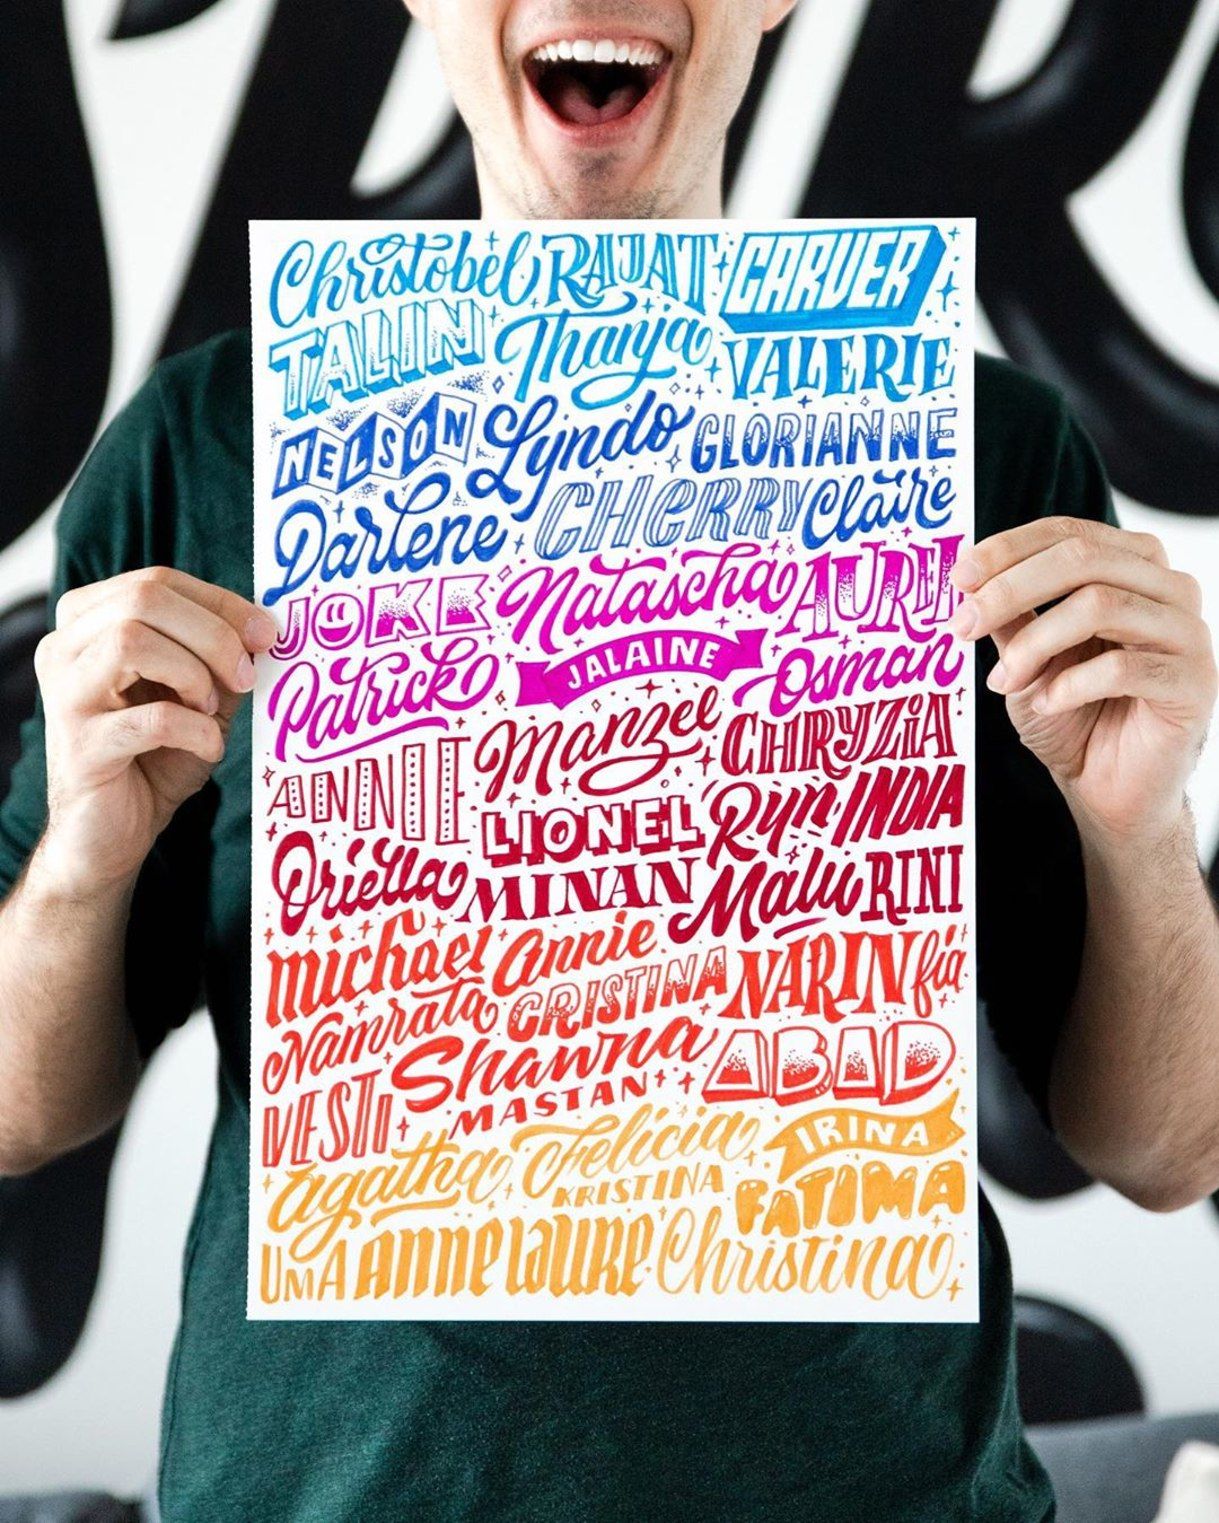 Christobel RAJAT CARVER
TALIN Thanja VALERIE
NELSON Lyndo GLORIANNE
Darlene CHERRY Claire
JOKE Natascha AUREL
Patrick JALAINE Osman
ANNIE Manzel CHRYZiA
LIONEL Ryn INDIA
Oriella MINAN Malu RINI
michael Annie NARIN fia
Namrata CRISTINA
VESTi Shawna ABAD
MASTAN
Agatha Felicia IRINA
KRISTINA FATIMA
UMA anne laure Christina